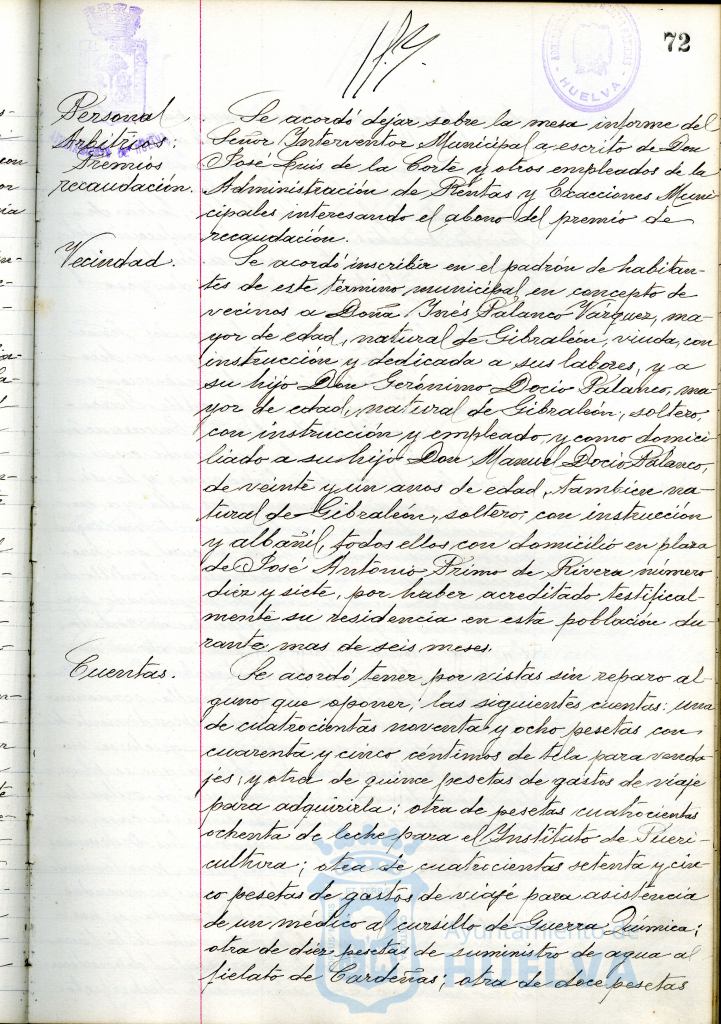 72
HUELVA
Personal
Arbitrios:
Premios
recaudación.
Se acordó dejar sobre la mesa informe del
Señor Interventor Municipal a escrito de Don
José Luis de la Corte y otros empleados de la
Administración de Rentas y Exacciones Muni
cipales interesando el abono del premio de
recaudación.
Vecindad.
Se acordó inscribir en el padrón de habitan-
tes de este término municipal en concepto de
vecinos a Doña Inés Palanco Vázquez, ma
yor de edad, natural de Gibraleón, viuda, con
instrucción y dedicada a sus labores, y a
su hijo Don Gerónimo Docio Palanco, ma
yor de edad, natural de Gibraleón, soltero,
con instrucción y empleado, y como domici
liado a su hijo Don Manuel Docio Palanco,
de veinte y un anos de edad, tambien na-
tural de Gibraleón, soltero, con instrucción
y albañil, todos ellos con domicilio en plaza
de José Antonio Primo de Rivera número
diez y siete, por haber acreditado testifical-
mente su residencia en esta población du
rante mas de seis meses.
Cuentas.
Se acordó tener por vistas sin reparo al-
guno que oponer, las siguientes cuentas: una
de cuatrocientas noventa y ocho pesetas con
cuarenta y cinco céntimos de tela para venda-
jes; y otra de quince pesetas de gastos de viaje
para adquirirla; otra de pesetas cuatrocientas
ochenta de leche para el Instituto de Pueri-
cultura; otra de cuatrocientas setenta y cin
co pesetas de gastos de viaje para asistencia
de un médico al cursillo de Guerra Química;
otra de diez pesetas de suministro de agua al
fielato de Cardeñas; otra de doce pesetas
Ayuntamiento de
HUELVA